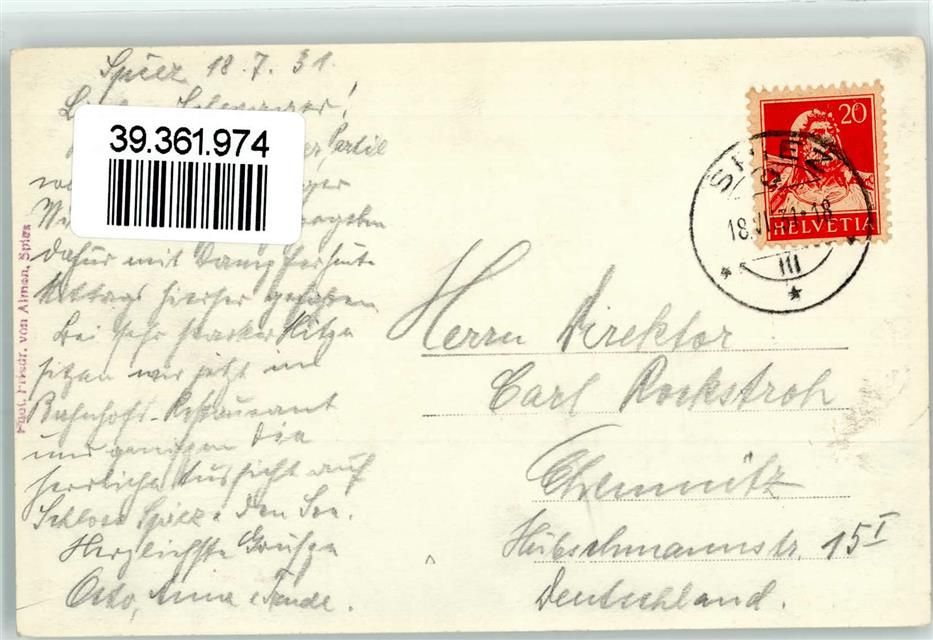 Spiez 18.7.31.
Schwager!
Partie
dafür mit Dampfer heute
Mittag hierher gefahren
Bei sehr starker Hitze
sitzen wir jetzt im
Bahnhofs-Restaurant
und geniessen die
herrliche Aussicht auf
Schloss Spiez & den See.
Herzlichste Grüsse
Otto, Anna & Trude.
39.361.974
Phot. Friedr. von Almen, Spiez
20
HELVETIA
SPIEZ
III
Herrn Direktor
Carl Rockstroh
Chemnitz
Hübschmannstr. 15 I
Deutschland.